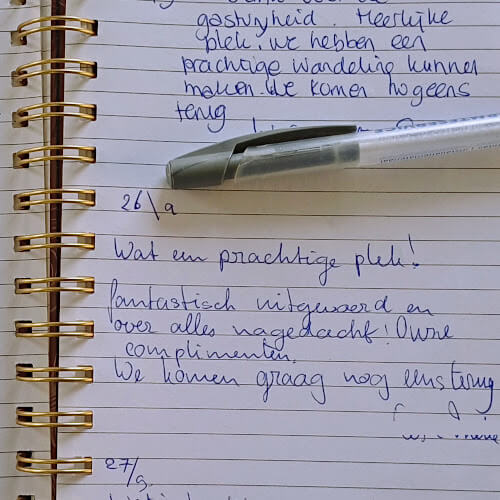 gastvrijheid. Heerlijke
plek, we hebben een
prachtige wandeling kunnen
maken. We komen nog eens
terug
26\9
Wat een prachtige plek!
fantastisch uitgevoerd en
over alles nagedacht! Onze
complimenten.
We komen graag nog eens terug
27/9